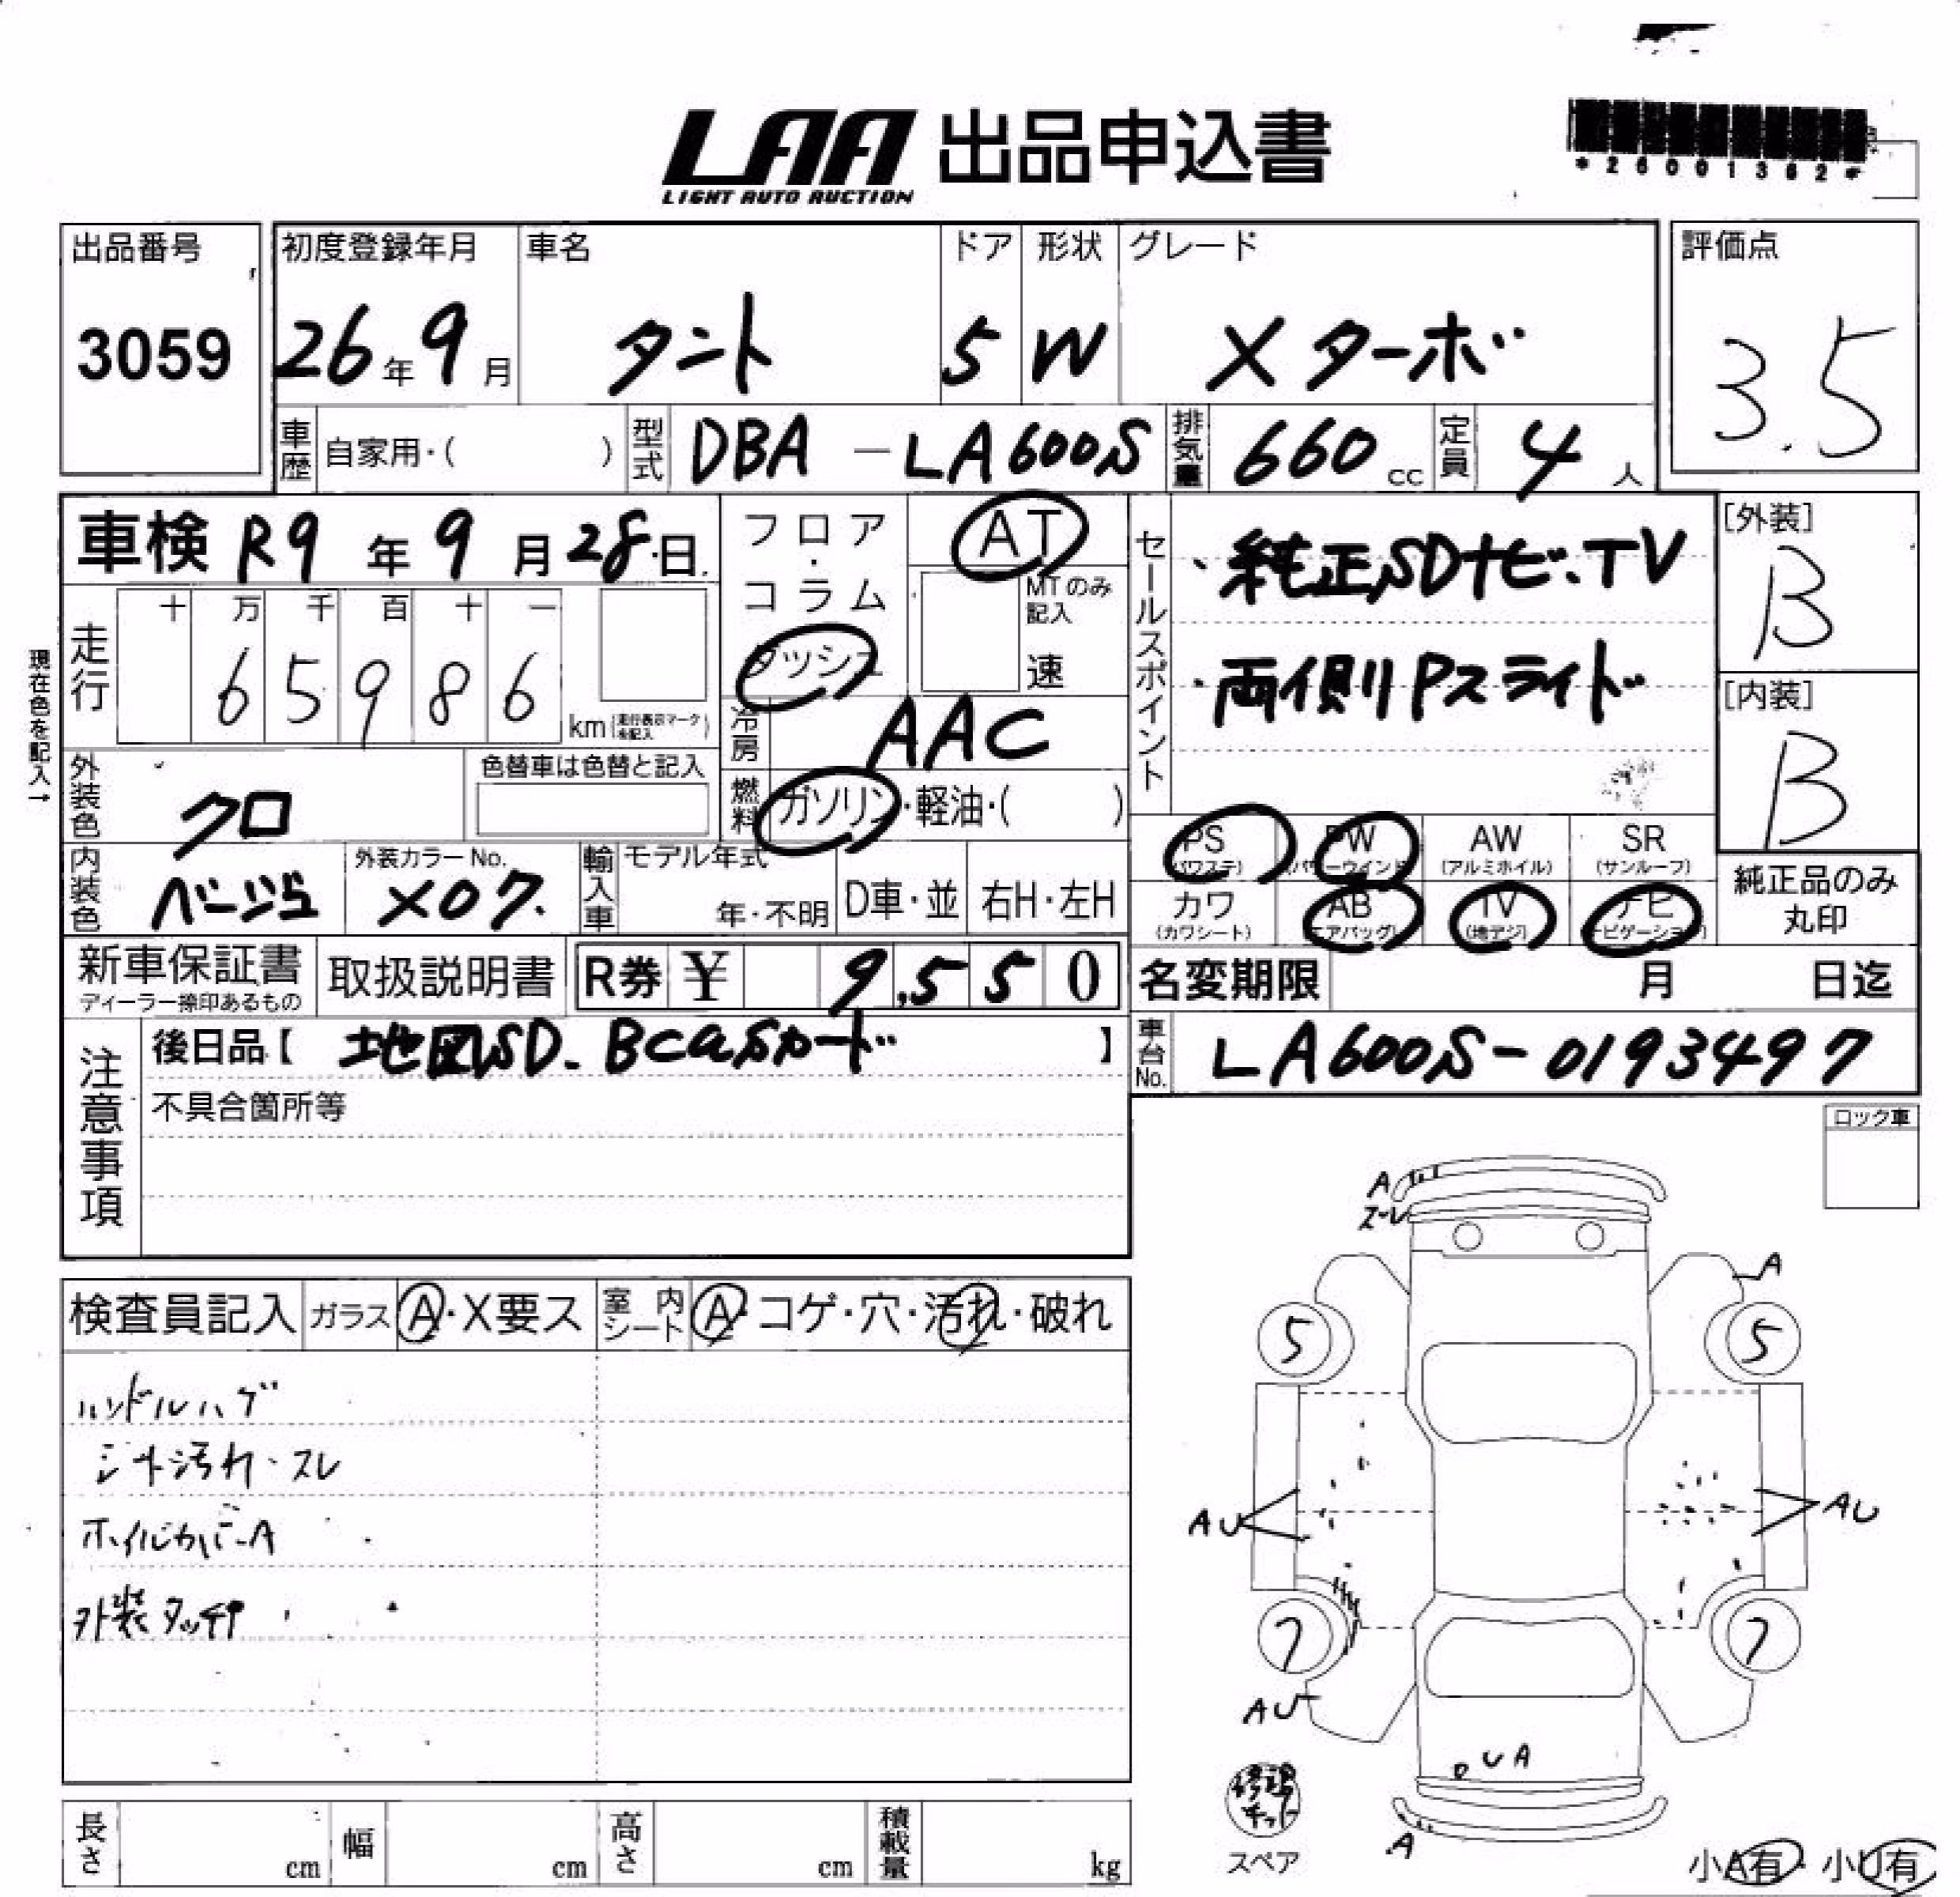 LAA 出品申込書
LIGHT AUTO AUCTION
*26001362*
出品番号 初度登録年月 車名 ドア 形状 グレード 評価点
3059 26年9月 タント 5 W Xターボ 3.5
車歴 自家用・( ) 型式 DBA-LA600S 排気量 660cc 定員 4人
車検 R9年9月28日
フロア・コラム
ダッシュ
AT
MTのみ記入
速
セールスポイント
・純正SDナビ・TV
・両側Pスライド
[外装]
B
[内装]
B
現在色を記入→
走行 十 万 千 百 十 一
65986 km (走行表示マーク未記入)
冷房 AAC
外装色 クロ 色替車は色替と記入
燃料 ガソリン・軽油・( )
PS (パワステ) PW (パワーウインド) AW (アルミホイル) SR (サンルーフ)
カワ (カワシート) AB (エアバッグ) TV (地デジ) ナビ (ナビゲーション)
純正品のみ丸印
内装色 ベージュ 外装カラーNo. X07 輸入車 モデル年式 年・不明 D車・並 右H・左H
新車保証書 ディーラー捺印あるもの 取扱説明書 R券 ¥ 9,550
名変期限 月 日迄
注意事項
後日品【 地図SD. Bcasカード 】
車台No. LA600S-0193497
不具合箇所等
ロック車
検査員記入 ガラス A・X要ス 室内シート A・コゲ・穴・汚れ・破れ
ハンドルハゲ
シート汚れ・スレ
ホイルカバーA
外装タッチ
A
A
5 5
AU AU
7 7
AU
UA
修理キット
スペア
A
小A有・小U有
長さ cm 幅 cm 高さ cm 積載量 kg